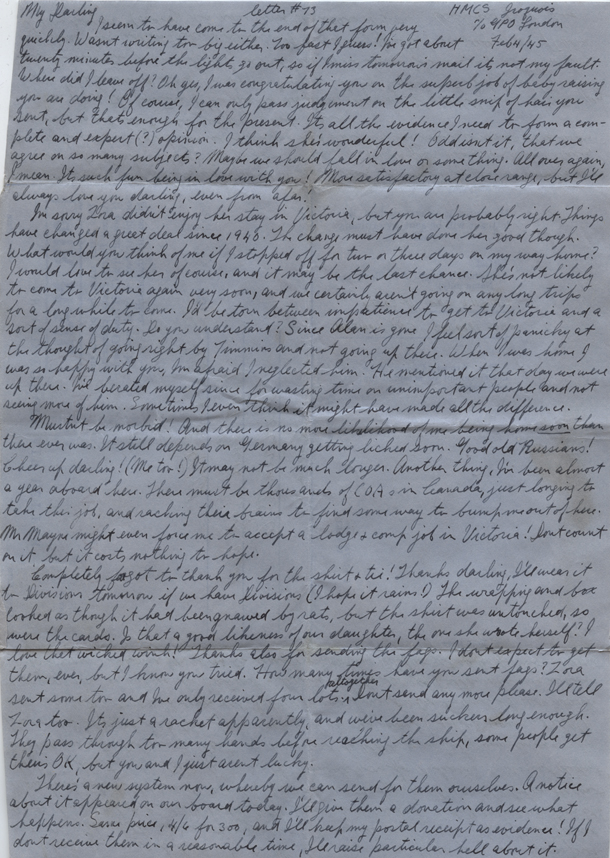 My Darling letter #73 HMCS Iroquois
c/o GPO London
Feb 4/45
I seem to have come to the end of that form very
quickly. Wasn't writing too big either. Too fast I guess! I've got about
twenty minutes before the lights go out, so if I miss tomorrow's mail it's not my fault.
Where did I leave off? Oh yes, I was congratulating you on the superb job of baby raising
you are doing! Of course, I can only pass judgement on the little snip of hair you
sent, but that's enough for the present. It's all the evidence I need to form a com-
plete and expert(?) opinion. I think she's wonderful! Odd isn't it, that we
agree on so many subjects? Maybe we should fall in love or something. All over again,
I mean. It's such fun being in love with you! More satisfactory at close range, but I'll
always love you darling, even from afar.
I'm sorry Zora didn't enjoy her stay in Victoria, but you are probably right. Things
have changed a great deal since 1940. The change must have done her good though.
What would you think of me if I stopped off for two or three days on my way home?
I would love to see her of course, and it may be the last chance. She's not likely
to come to Victoria again very soon, and we certainly aren't going on any long trips
for a long while to come. I'd be torn between impatience to get to Victoria and a
sort of sense of duty. Do you understand? Since Alan is gone I feel sort of panicky at
the thought of going right by Timmins and not going up there. When I was home I
was so happy with you, I'm afraid I neglected him. He mentioned it that day we were
up there. I've berated myself since for wasting time on unimportant people and not
seeing more of him. Sometimes I even think it might have made all the difference.
Mustn't be morbid! And there is no more likelihood of me being home soon than
there ever was. It still depends on Germany getting licked soon. Good old Russians!
Cheer up darling! (Me too!) It may not be much longer. Another thing, I've been almost
a year aboard here. There must be thousands of COA's in Canada, just longing to
take this job, and racking their brains to find some way to bump me out of here.
Mr Mayne might even force me to accept a lodge & comp job in Victoria! Don't count
on it, but it costs nothing to hope.
Completely forgot to thank you for the shirt & tie! Thanks darling, I'll wear it
to Divisions tomorrow if we have Divisions (I hope it rains!) The wrapping and box
looked as though it had been gnawed by rats, but the shirt was untouched, so
were the cards. Is that a good likeness of our daughter, the one she wrote herself? I
love that wicked wink! Thanks also for sending the fags. I don't expect to get
them, ever, but I know you tried. How many times have you sent fags? Zora
sent some too and I've only received four lots altogether. Don't send any more please. I'll tell
Zora too. It's just a racket apparently, and we've been suckers long enough.
They pass through too many hands before reaching the ship, some people get
theirs OK, but you and I just aren't lucky.
There's a new system now, whereby we can send for them ourselves. A notice
about it appeared on our board today. I'll give them a donation and see what
happens. Same price, 4/6 for 300, and I'll keep my postal receipt as evidence! If I
don't receive them in a reasonable time, I'll raise particular hell about it.